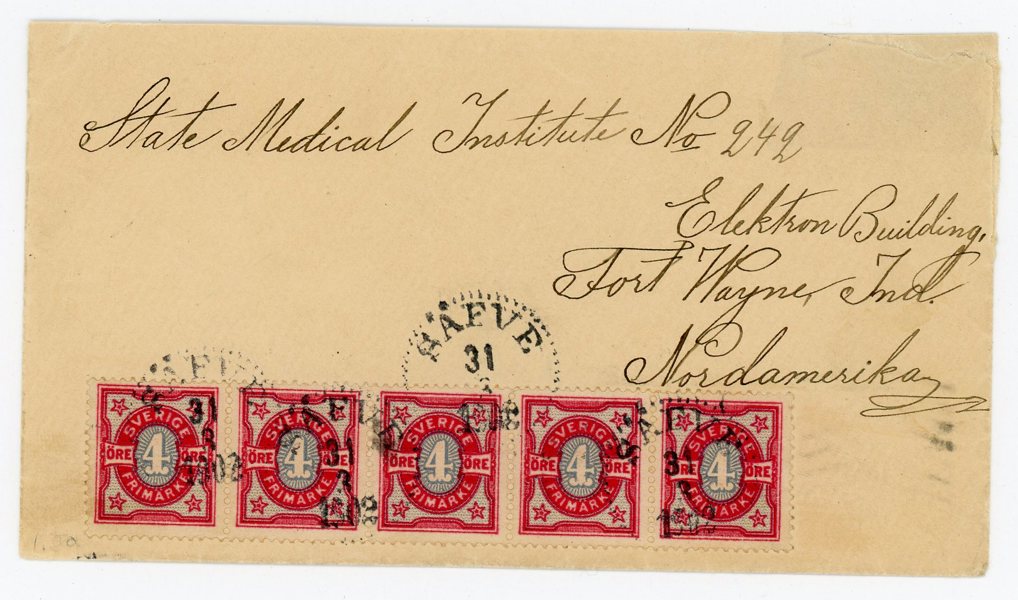 State Medical Institute No 242
Elektron Building,
Fort Wayne, Ind.
Nordamerika
SÄFVE
31
1902
SVERIGE
ÖRE 4 ÖRE
FRIMÄRKE
31
3
1902
SVERIGE
ÖRE 4 ÖRE
FRIMÄRKE
SÄFVE
31
3
1902
SVERIGE
ÖRE 4 ÖRE
FRIMÄRKE
SVERIGE
ÖRE 4 ÖRE
FRIMÄRKE
SÄFVE
31
1902
SVERIGE
ÖRE 4 ÖRE
FRIMÄRKE